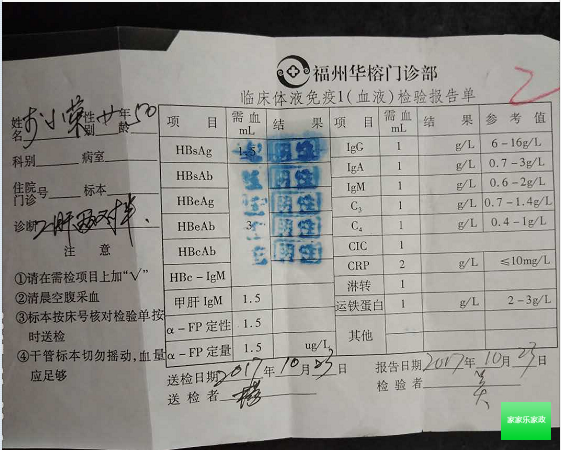 福州华榕门诊部
临床体液免疫1(血液)检验报告单
姓名 性别 女 年龄 50
科别 病室
住院 门诊 号 标本
诊断
注 意
①请在需检项目上加“√”
②清晨空腹采血
③标本按床号核对检验单按
时送检
④干管标本切勿摇动,血量
应足够
项 目 需血 mL 结 果 项 目 需血 mL 结 果 参 考 值
HBsAg 1.5 阴性 IgG 1 g/L 6-16g/L
HBsAb 阴性 IgA 1 g/L 0.7-3g/L
HBeAg 阴性 IgM 1 g/L 0.6-2g/L
HBeAb 3 阴性 C₃ 1 g/L 0.7-1.4g/L
HBcAb 阴性 C₄ 1 g/L 0.4-1g/L
HBc-IgM CIC 1
甲肝 IgM 1.5 CRP 2 g/L ≤10mg/L
α-FP 定性 1.5 淋转 1
α-FP 定量 1.5 ug/L 运铁蛋白 1 g/L 2-3g/L
其他
送检日期 2017 年 10 月 23 日 报告日期 2017 年 10 月 23 日
送 检 者 检 验 者
家家乐家政